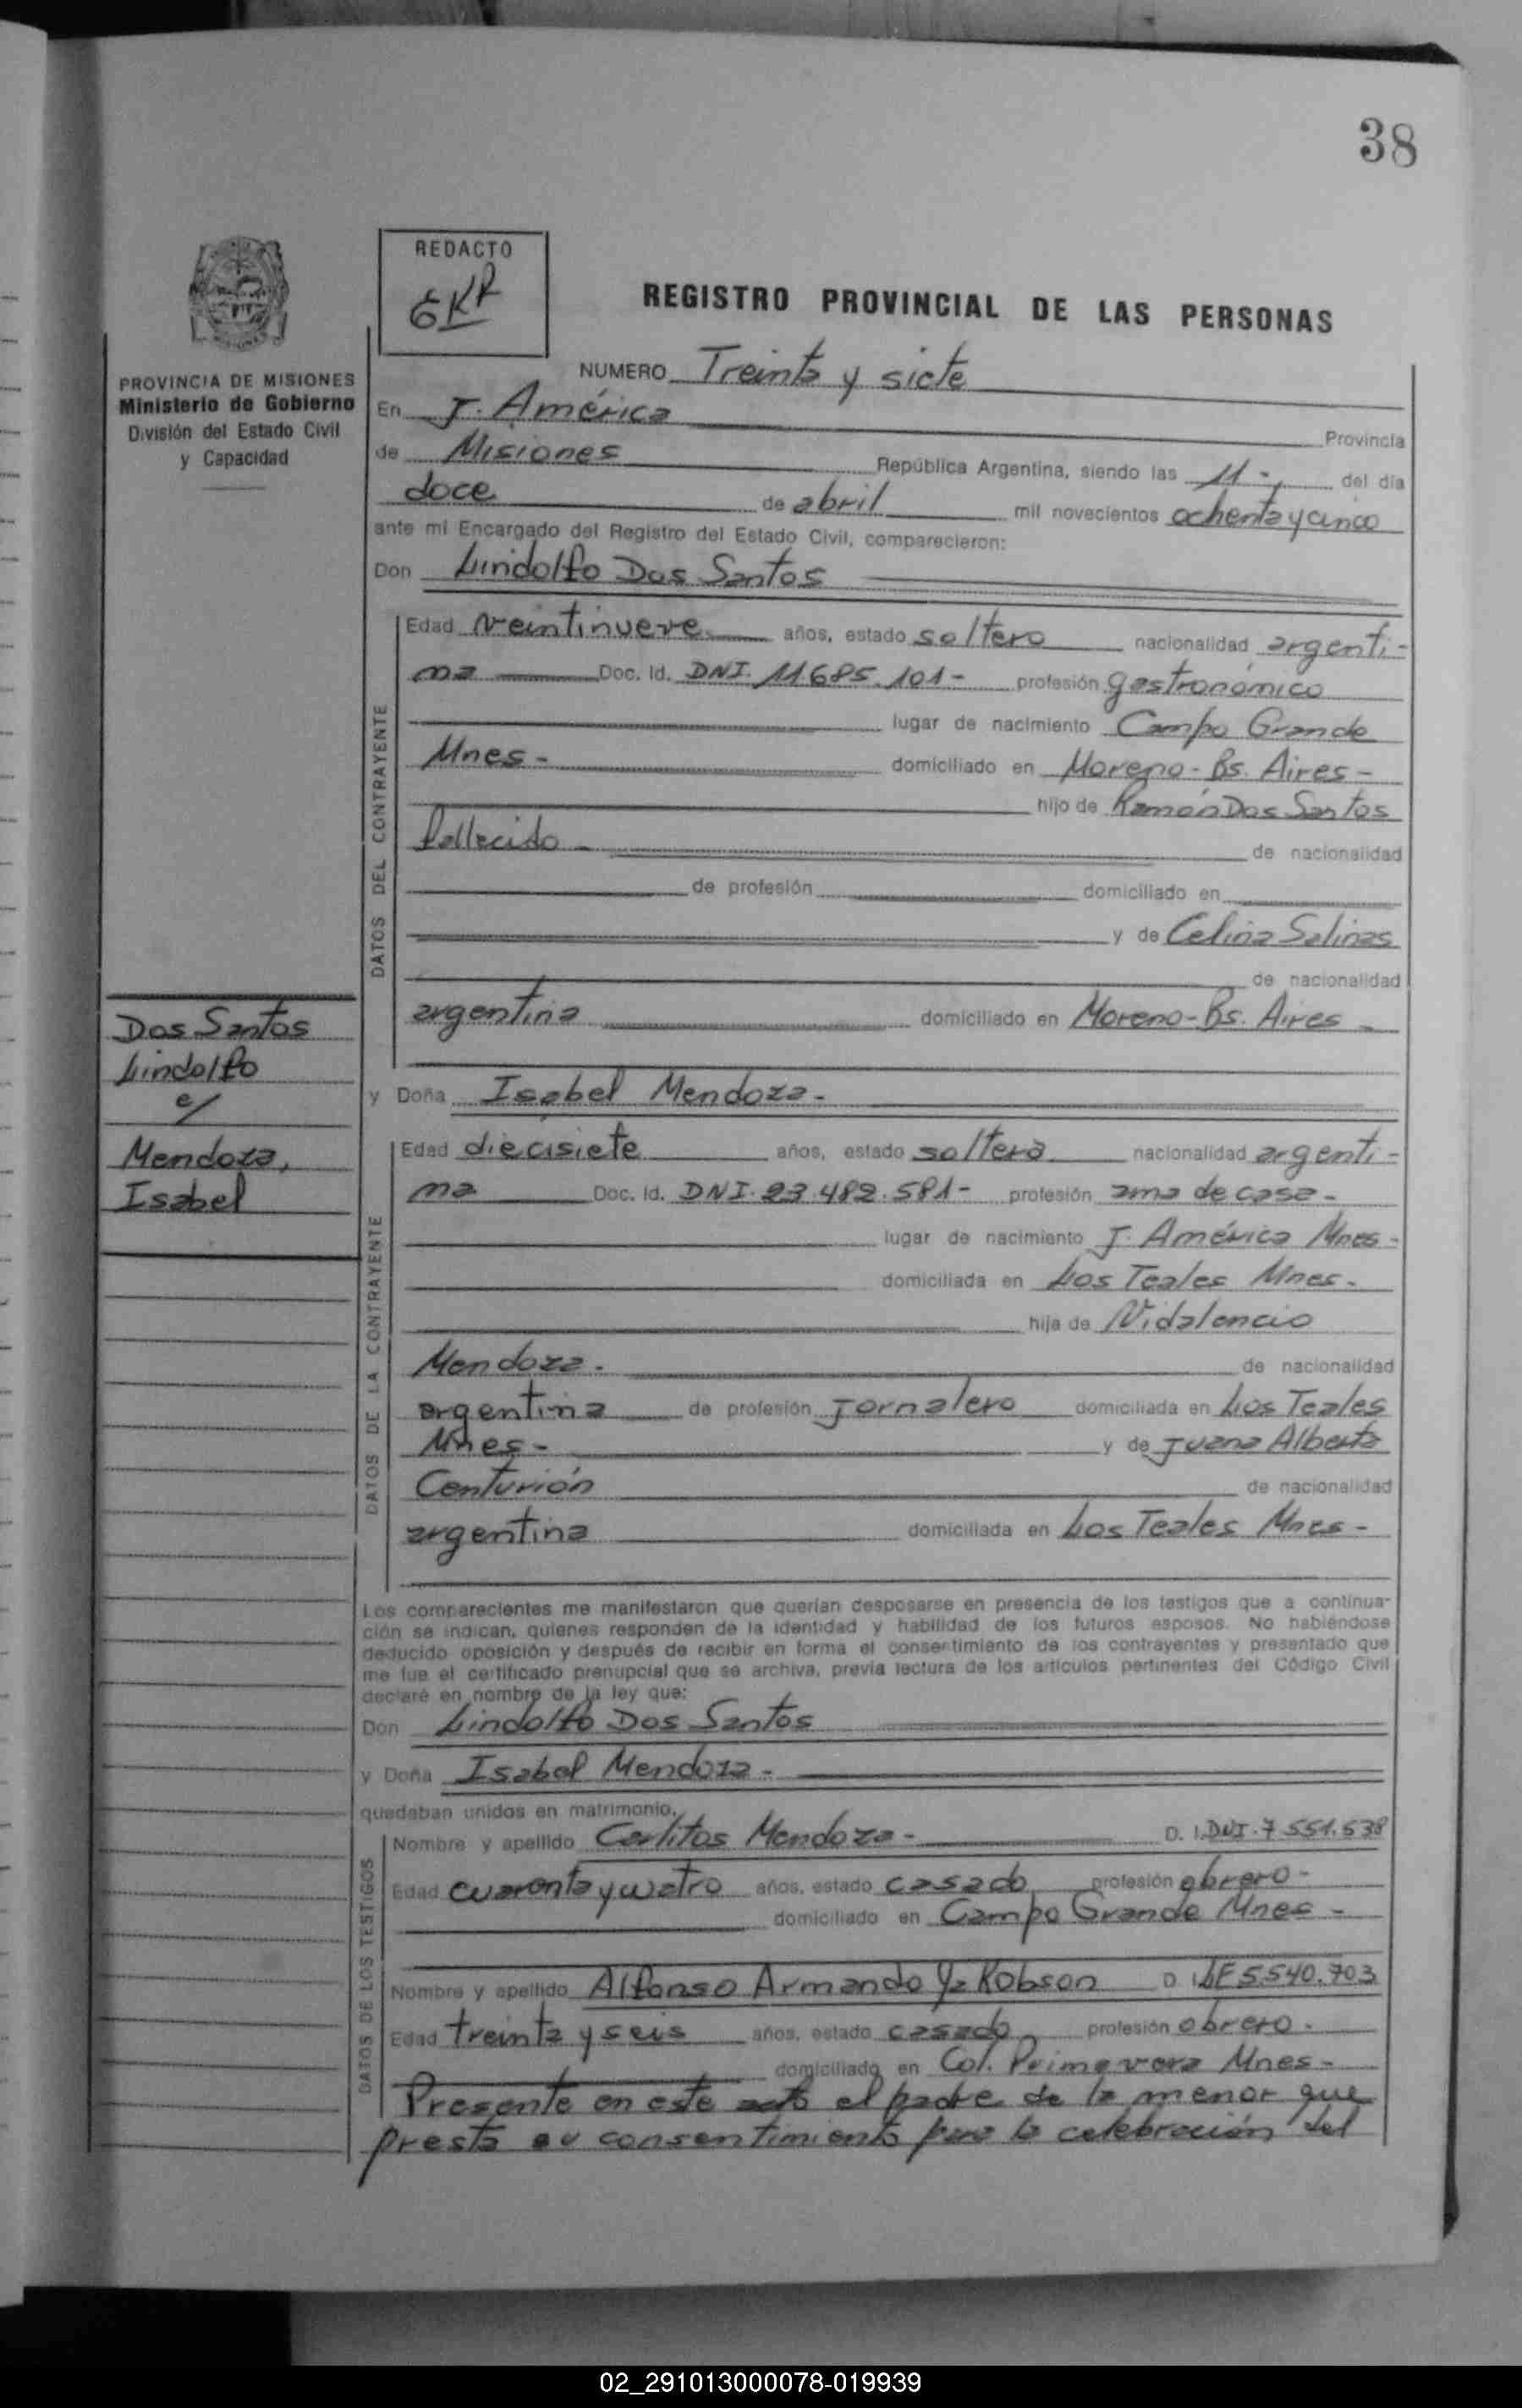 38
REDACTO
EKR
REGISTRO PROVINCIAL DE LAS PERSONAS
PROVINCIA DE MISIONES
Ministerio de Gobierno
División del Estado Civil
y Capacidad
NUMERO Treinta y siete
En J. América Provincia
de Misiones República Argentina, siendo las 11- del día
doce de abril mil novecientos ochenta y cinco
ante mi Encargado del Registro del Estado Civil, comparecieron:
Don Lindolfo Dos Santos
DATOS DEL CONTRAYENTE
Edad veintinueve años, estado soltero nacionalidad argenti-
na Doc. Id. DNI. 11685.101- profesión gastronómico
lugar de nacimiento Campo Grande
Mnes- domiciliado en Moreno-Bs. Aires-
hijo de Ramón Dos Santos
fallecido - de nacionalidad
de profesión domiciliado en
y de Celina Salinas
de nacionalidad
argentina domiciliado en Moreno-Bs. Aires -
Dos Santos
Lindolfo
c/
Mendoza,
Isabel
y Doña Isabel Mendoza-
DATOS DE LA CONTRAYENTE
Edad diecisiete años, estado soltera nacionalidad argenti-
na Doc. Id. DNI. 23.482.581- profesión ama de casa-
lugar de nacimiento J. América Mnes-
domiciliada en Los Teales Mnes-
hija de Vidalencio
Mendoza. de nacionalidad
argentina de profesión jornalero domiciliada en Los Teales
Mnes- y de Juana Alberta
Centurión de nacionalidad
argentina domiciliada en Los Teales Mnes-
Los comparecientes me manifestaron que querían desposarse en presencia de los testigos que a continua-
ción se indican, quienes responden de la identidad y habilidad de los futuros esposos. No habiéndose
deducido oposición y después de recibir en forma el consentimiento de los contrayentes y presentado que
me fue el certificado prenupcial que se archiva, previa lectura de los artículos pertinentes del Código Civil
declaré en nombre de la ley que:
Don Lindolfo Dos Santos
y Doña Isabel Mendoza-
quedaban unidos en matrimonio.
DATOS DE LOS TESTIGOS
Nombre y apellido Carlitos Mendoza- D. I. DNI. 7 551.538
Edad cuarenta y cuatro años, estado casado profesión obrero-
domiciliado en Campo Grande Mnes-
Nombre y apellido Alfonso Armando Robson D. I. LE 5.540.703
Edad treinta y seis años, estado casado profesión obrero.
domiciliado en Col. Primavera Mnes-
Presente en este acto el padre de la menor que
presta su consentimiento para la celebración del
02_291013000078-019939